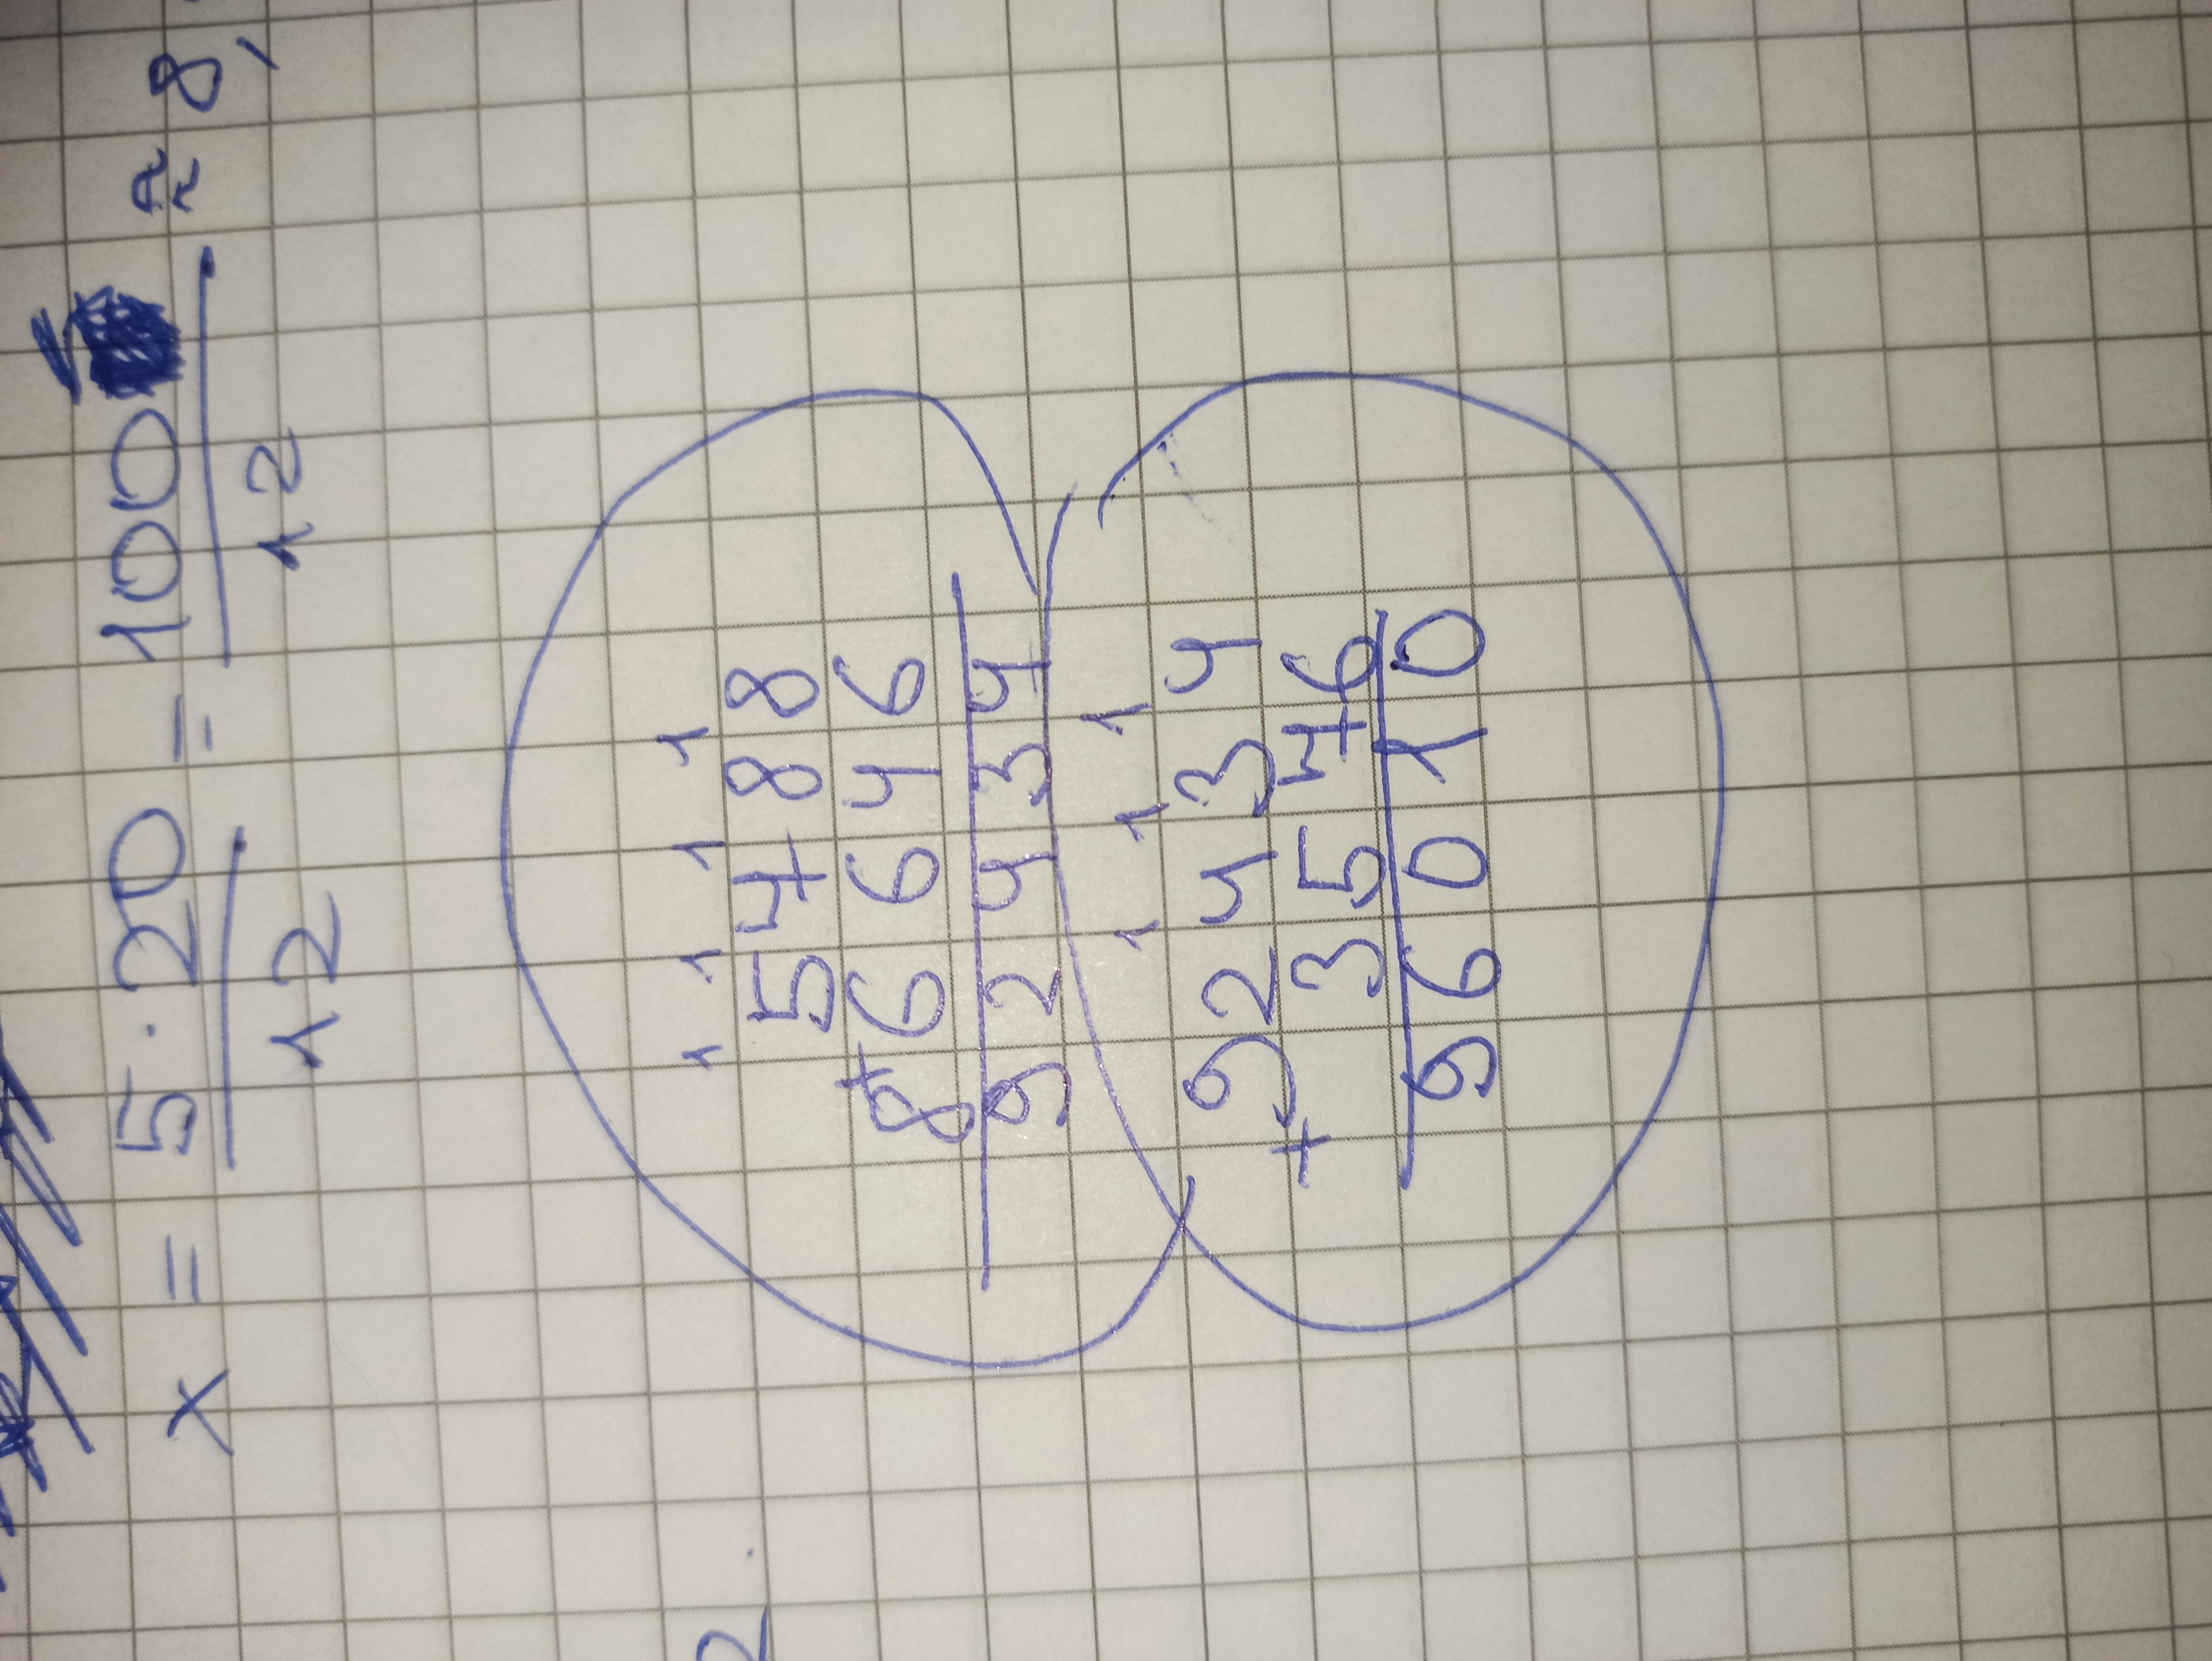 x = 5 · 20 / 12 = 100 / 12 ≈ 8,
1 1 1 1
5788
8+6646
92434
1 1 1
92434
+ 3576
96010